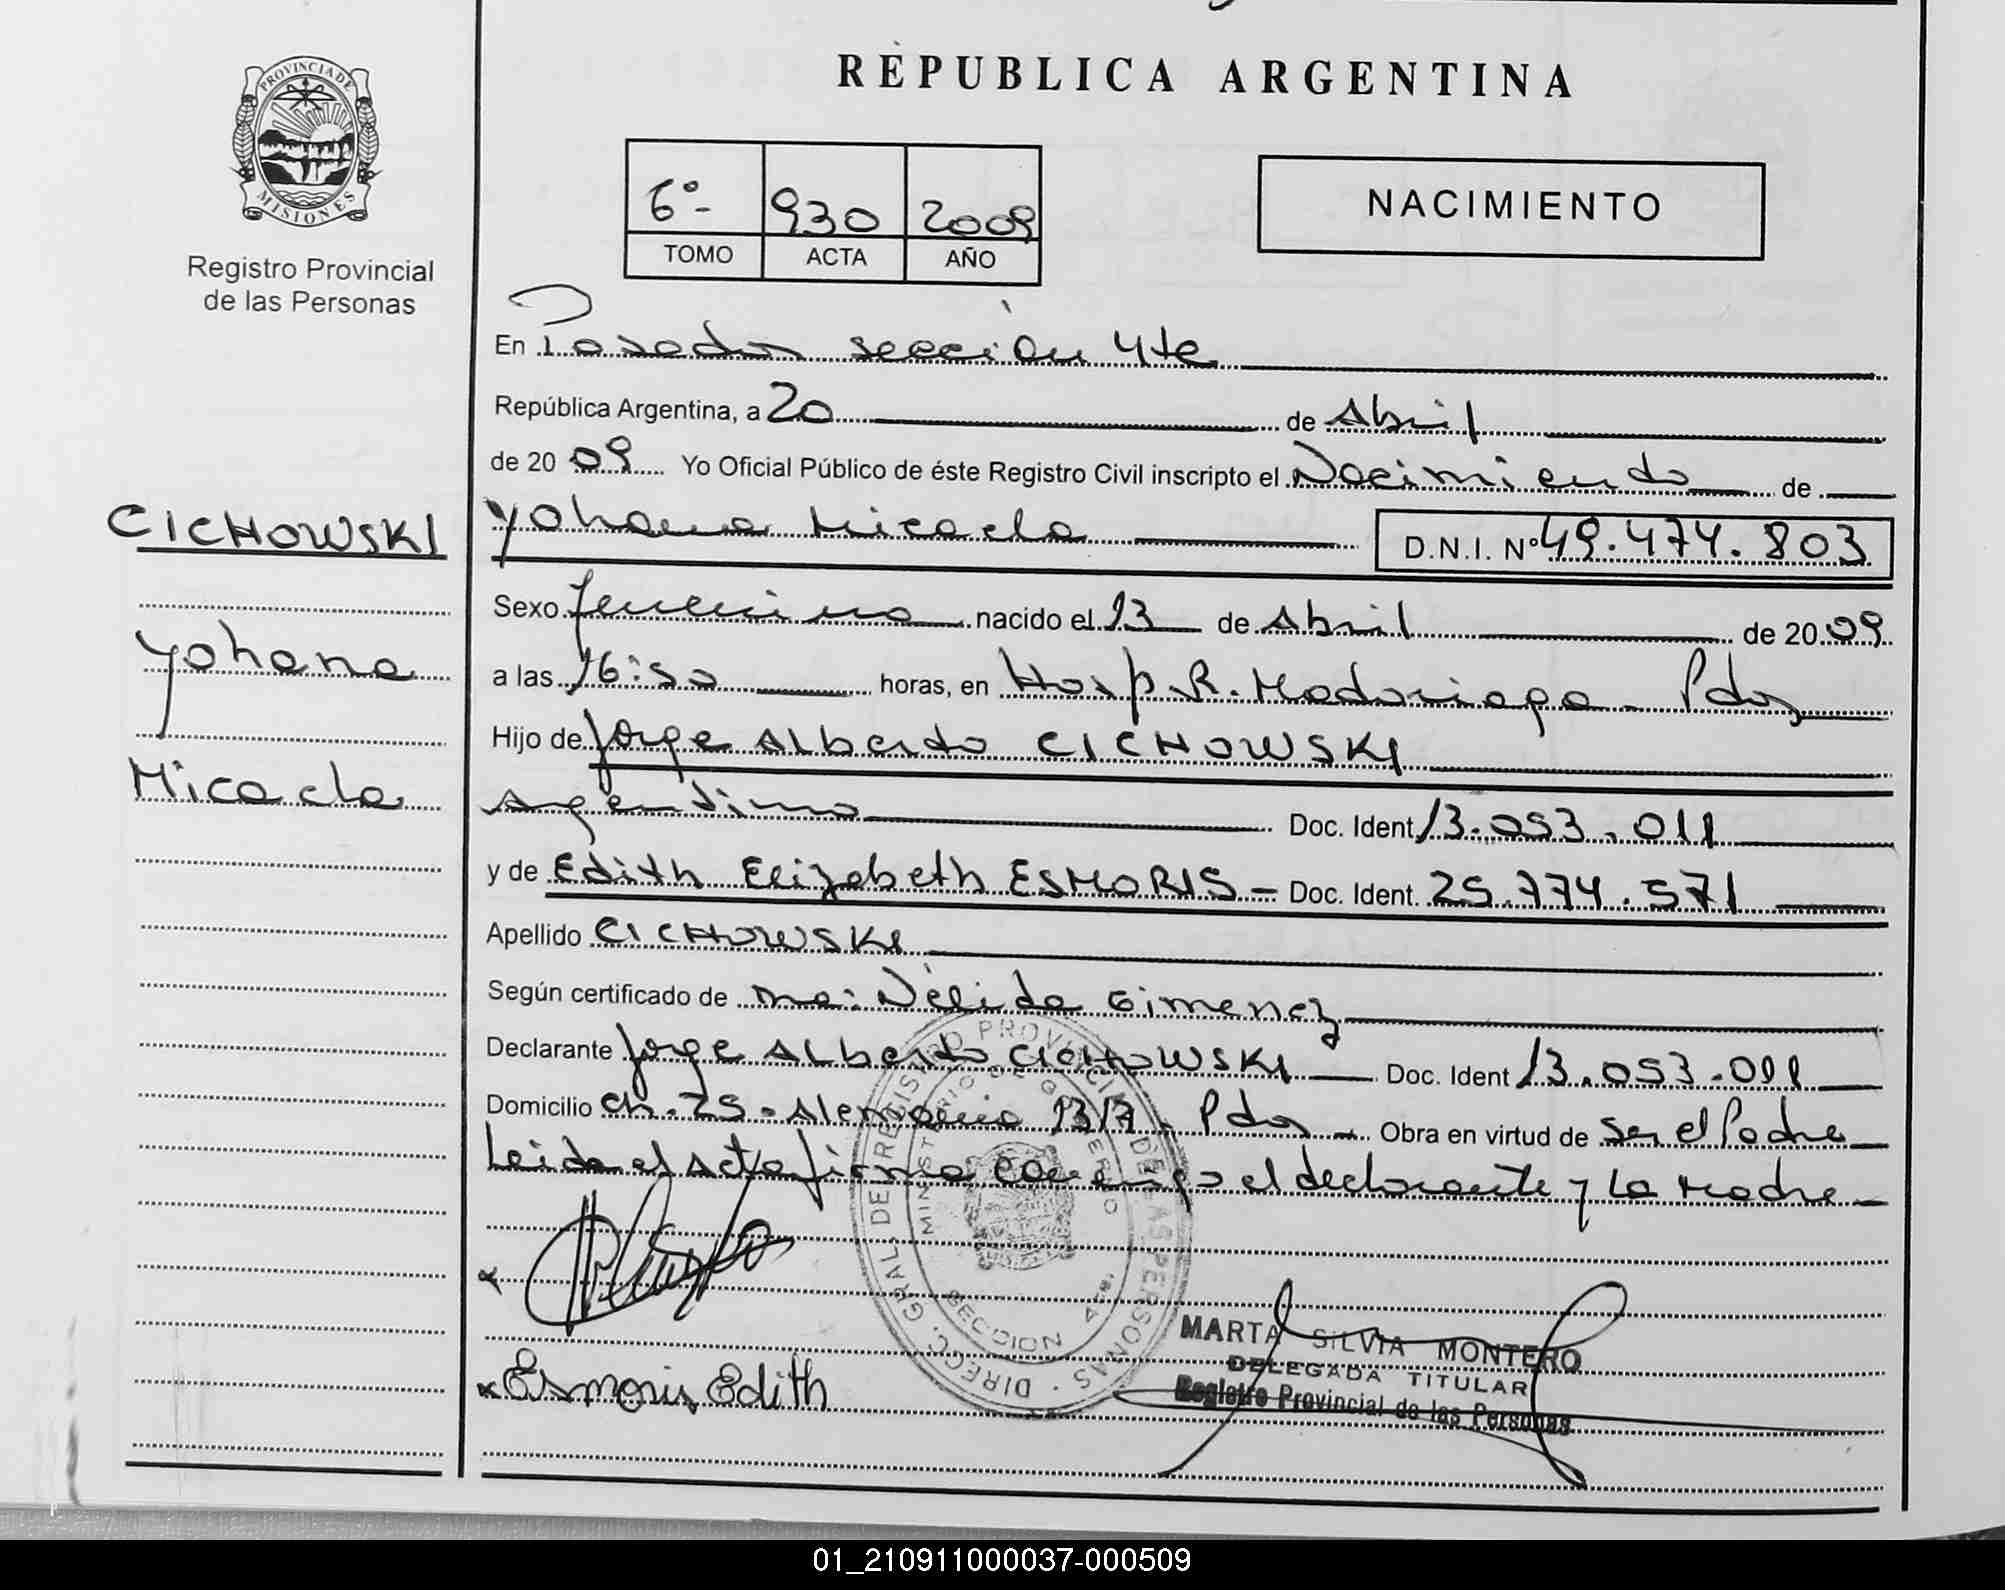 REPUBLICA ARGENTINA
PROVINCIA DE
MISIONES
Registro Provincial
de las Personas
6º- 930 2009
TOMO ACTA AÑO
NACIMIENTO
En Posadas sección 4te
República Argentina, a 20 de Abril
de 20 09 Yo Oficial Público de éste Registro Civil inscripto el Nacimiento de
CICHOWSKI
Yohana Micaela D.N.I. Nº 49.474.803
Sexo femenino nacido el 13 de Abril de 20 09
Yohana
a las 16:50 horas, en Hosp. R. Madariaga - Pdas
Hijo de Jorge Alberto CICHOWSKI
Micaela
Argentino Doc. Ident 13.053.011
y de Edith Elizabeth ESMORIS - Doc. Ident. 25.774.571
Apellido CICHOWSKI
Según certificado de Nélida Gimenez
Declarante Jorge Alberto CICHOWSKI Doc. Ident 13.053.011
Domicilio Ch. 25 - Alemania 1317 - Pdas - Obra en virtud de Ser el Padre
Leida el Acta firma conmigo el declarante y La Madre
DIRECC. GRAL. DE REGISTRO PROVINCIAL DE LAS PERSONAS
MINISTERIO DE GOBIERNO
MARTA SILVIA MONTERO
DELEGADA TITULAR
Registro Provincial de las Personas
Esmoris Edith
01_210911000037-000509